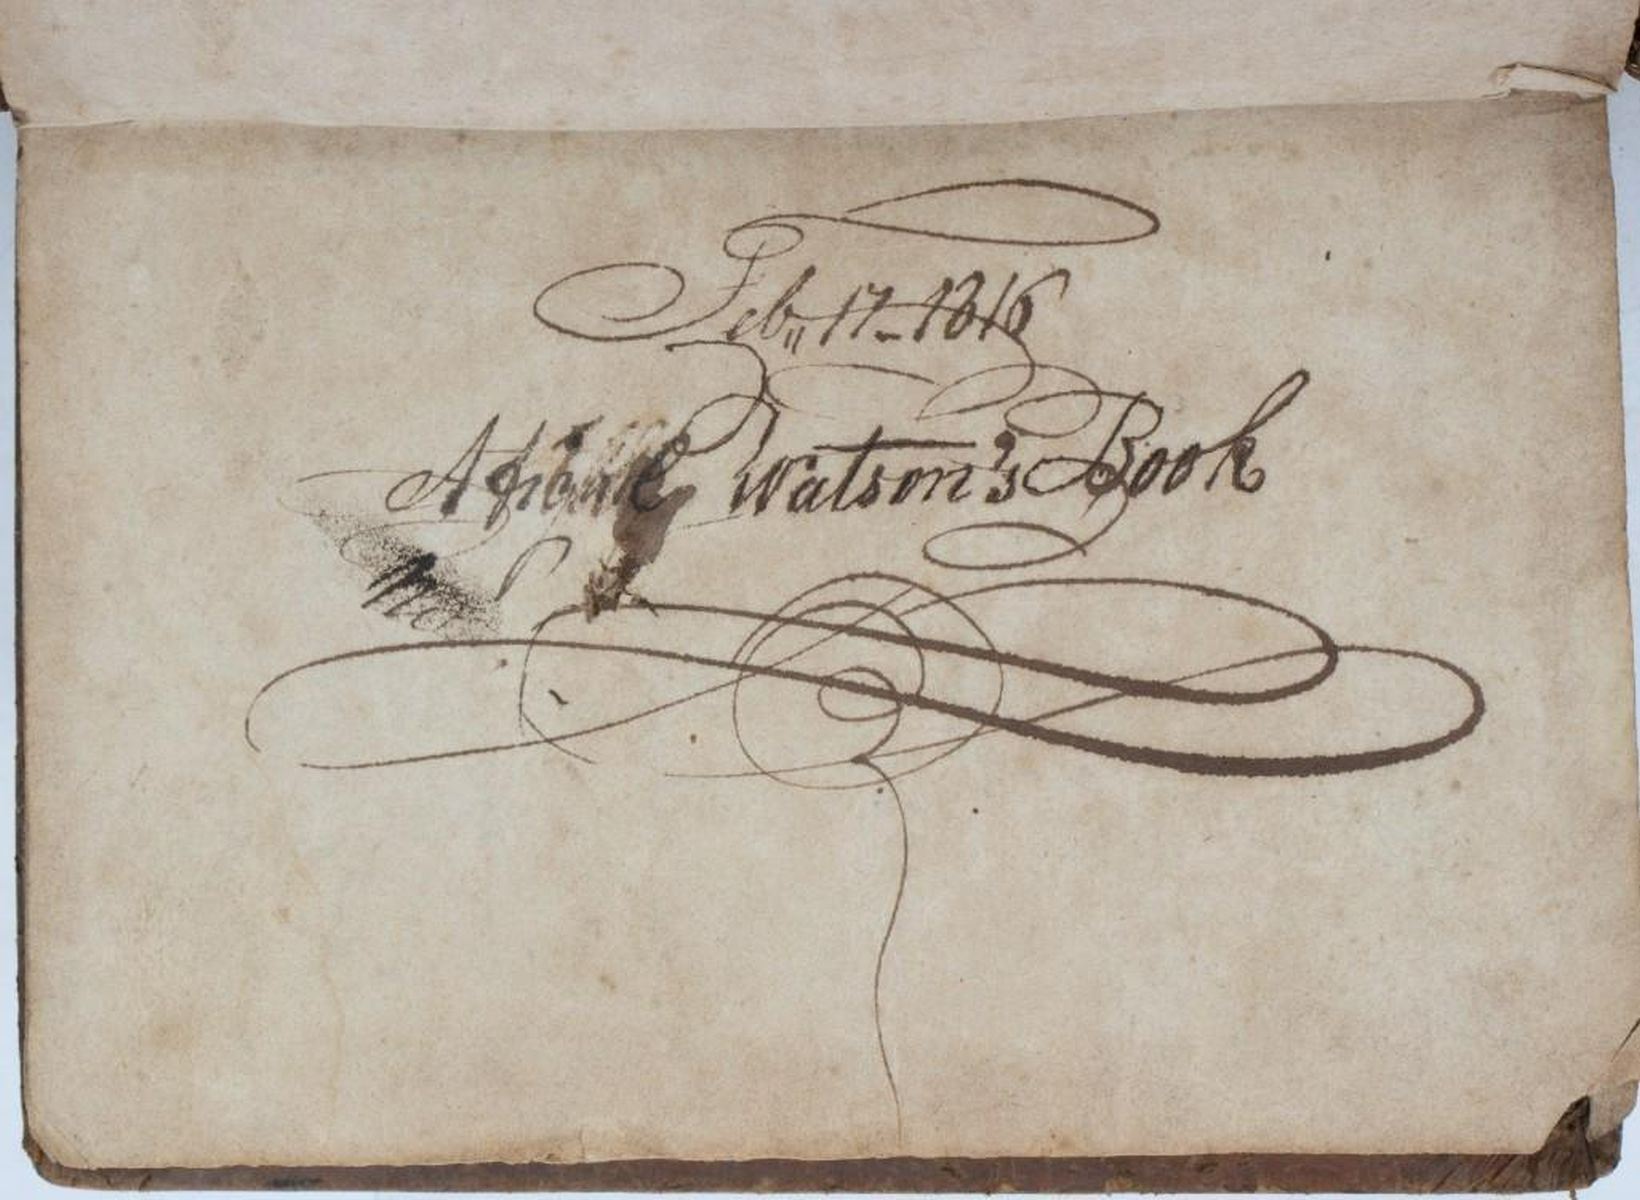 Feb,, 17 - 1816
Watson's Book